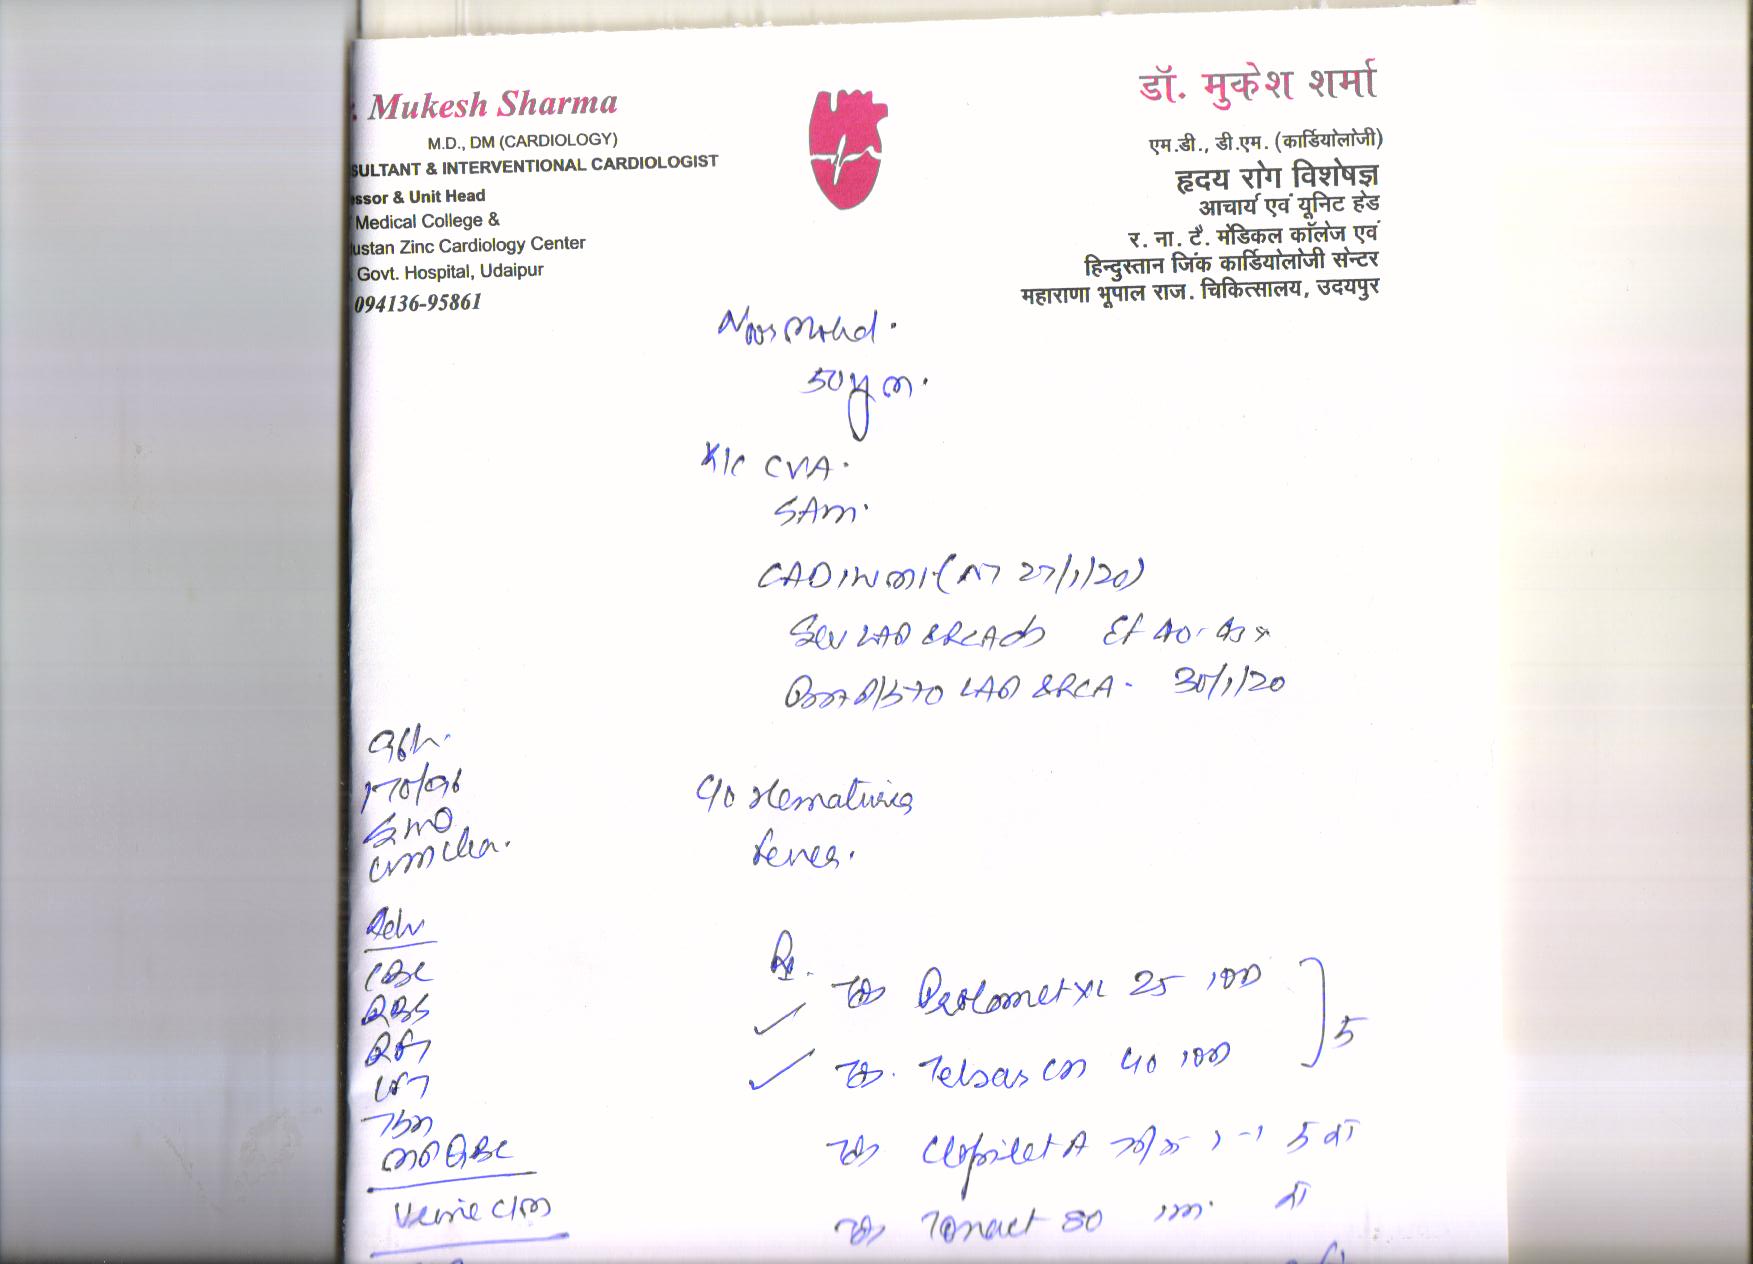 : Mukesh Sharma
M.D., DM (CARDIOLOGY)
SULTANT & INTERVENTIONAL CARDIOLOGIST
essor & Unit Head
Medical College &
ustan Zinc Cardiology Center
Govt. Hospital, Udaipur
094136-95861
डॉ. मुकेश शर्मा
एम.डी., डी.एम. (कार्डियोलॉजी)
हृदय रोग विशेषज्ञ
आचार्य एवं यूनिट हेड
र. ना. टै. मेडिकल कॉलेज एवं
हिन्दुस्तान जिंक कार्डियोलोजी सेन्टर
महाराणा भूपाल राज. चिकित्सालय, उदयपुर
Noor Mohd.
50y m.
K/c CVA.
CAD IWMI (27/1/20)
Sev LAD & RCA EF 40-45%
to LAD & RCA - 30/1/20
96/m.
170/96
C/o Hematuria
fever.
Adv
CBC
RBS
RFT
LFT
MP QBC
Urine C/M
Rx.
Tab Prolomet XL 25 1OD
Tab. Telsar 40 1OD
] 5
Tab Clopilet A 5
Tab Tonact 80